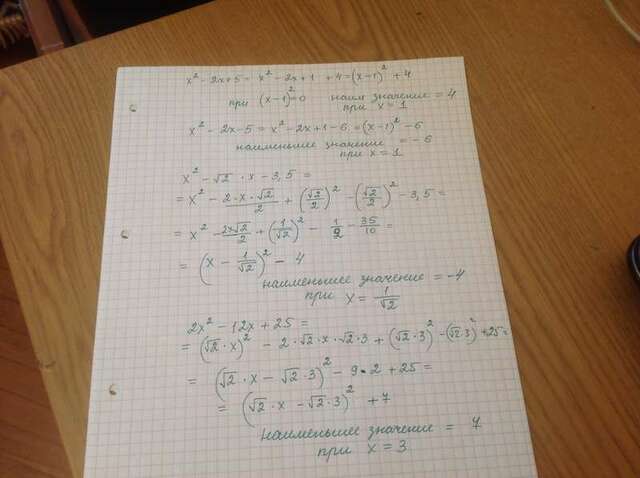 x² - 2x+5 = x² - 2x+1 +4=(x-1)² +4
при (x-1)²=0 наим значение = 4
при x=1
x² - 2x-5 = x² - 2x+1-6 =(x-1)² -6
наименьшее значение = -6
при x=1
x² - √2 · x - 3,5 =
= x² - 2·x·√2/2 + (√2/2)² - (√2/2)² - 3,5 =
= x² - 2x√2/2 + (1/√2)² - 1/2 - 35/10 =
= (x - 1/√2)² - 4
наименьшее значение = -4
при x = 1/√2
2x² - 12x + 25 =
= (√2·x)² - 2·√2·x·√2·3 + (√2·3)² - (√2·3)² +25=
= (√2·x - √2·3)² - 9·2 + 25 =
= (√2·x - √2·3)² + 7
наименьшее значение = 7
при x = 3